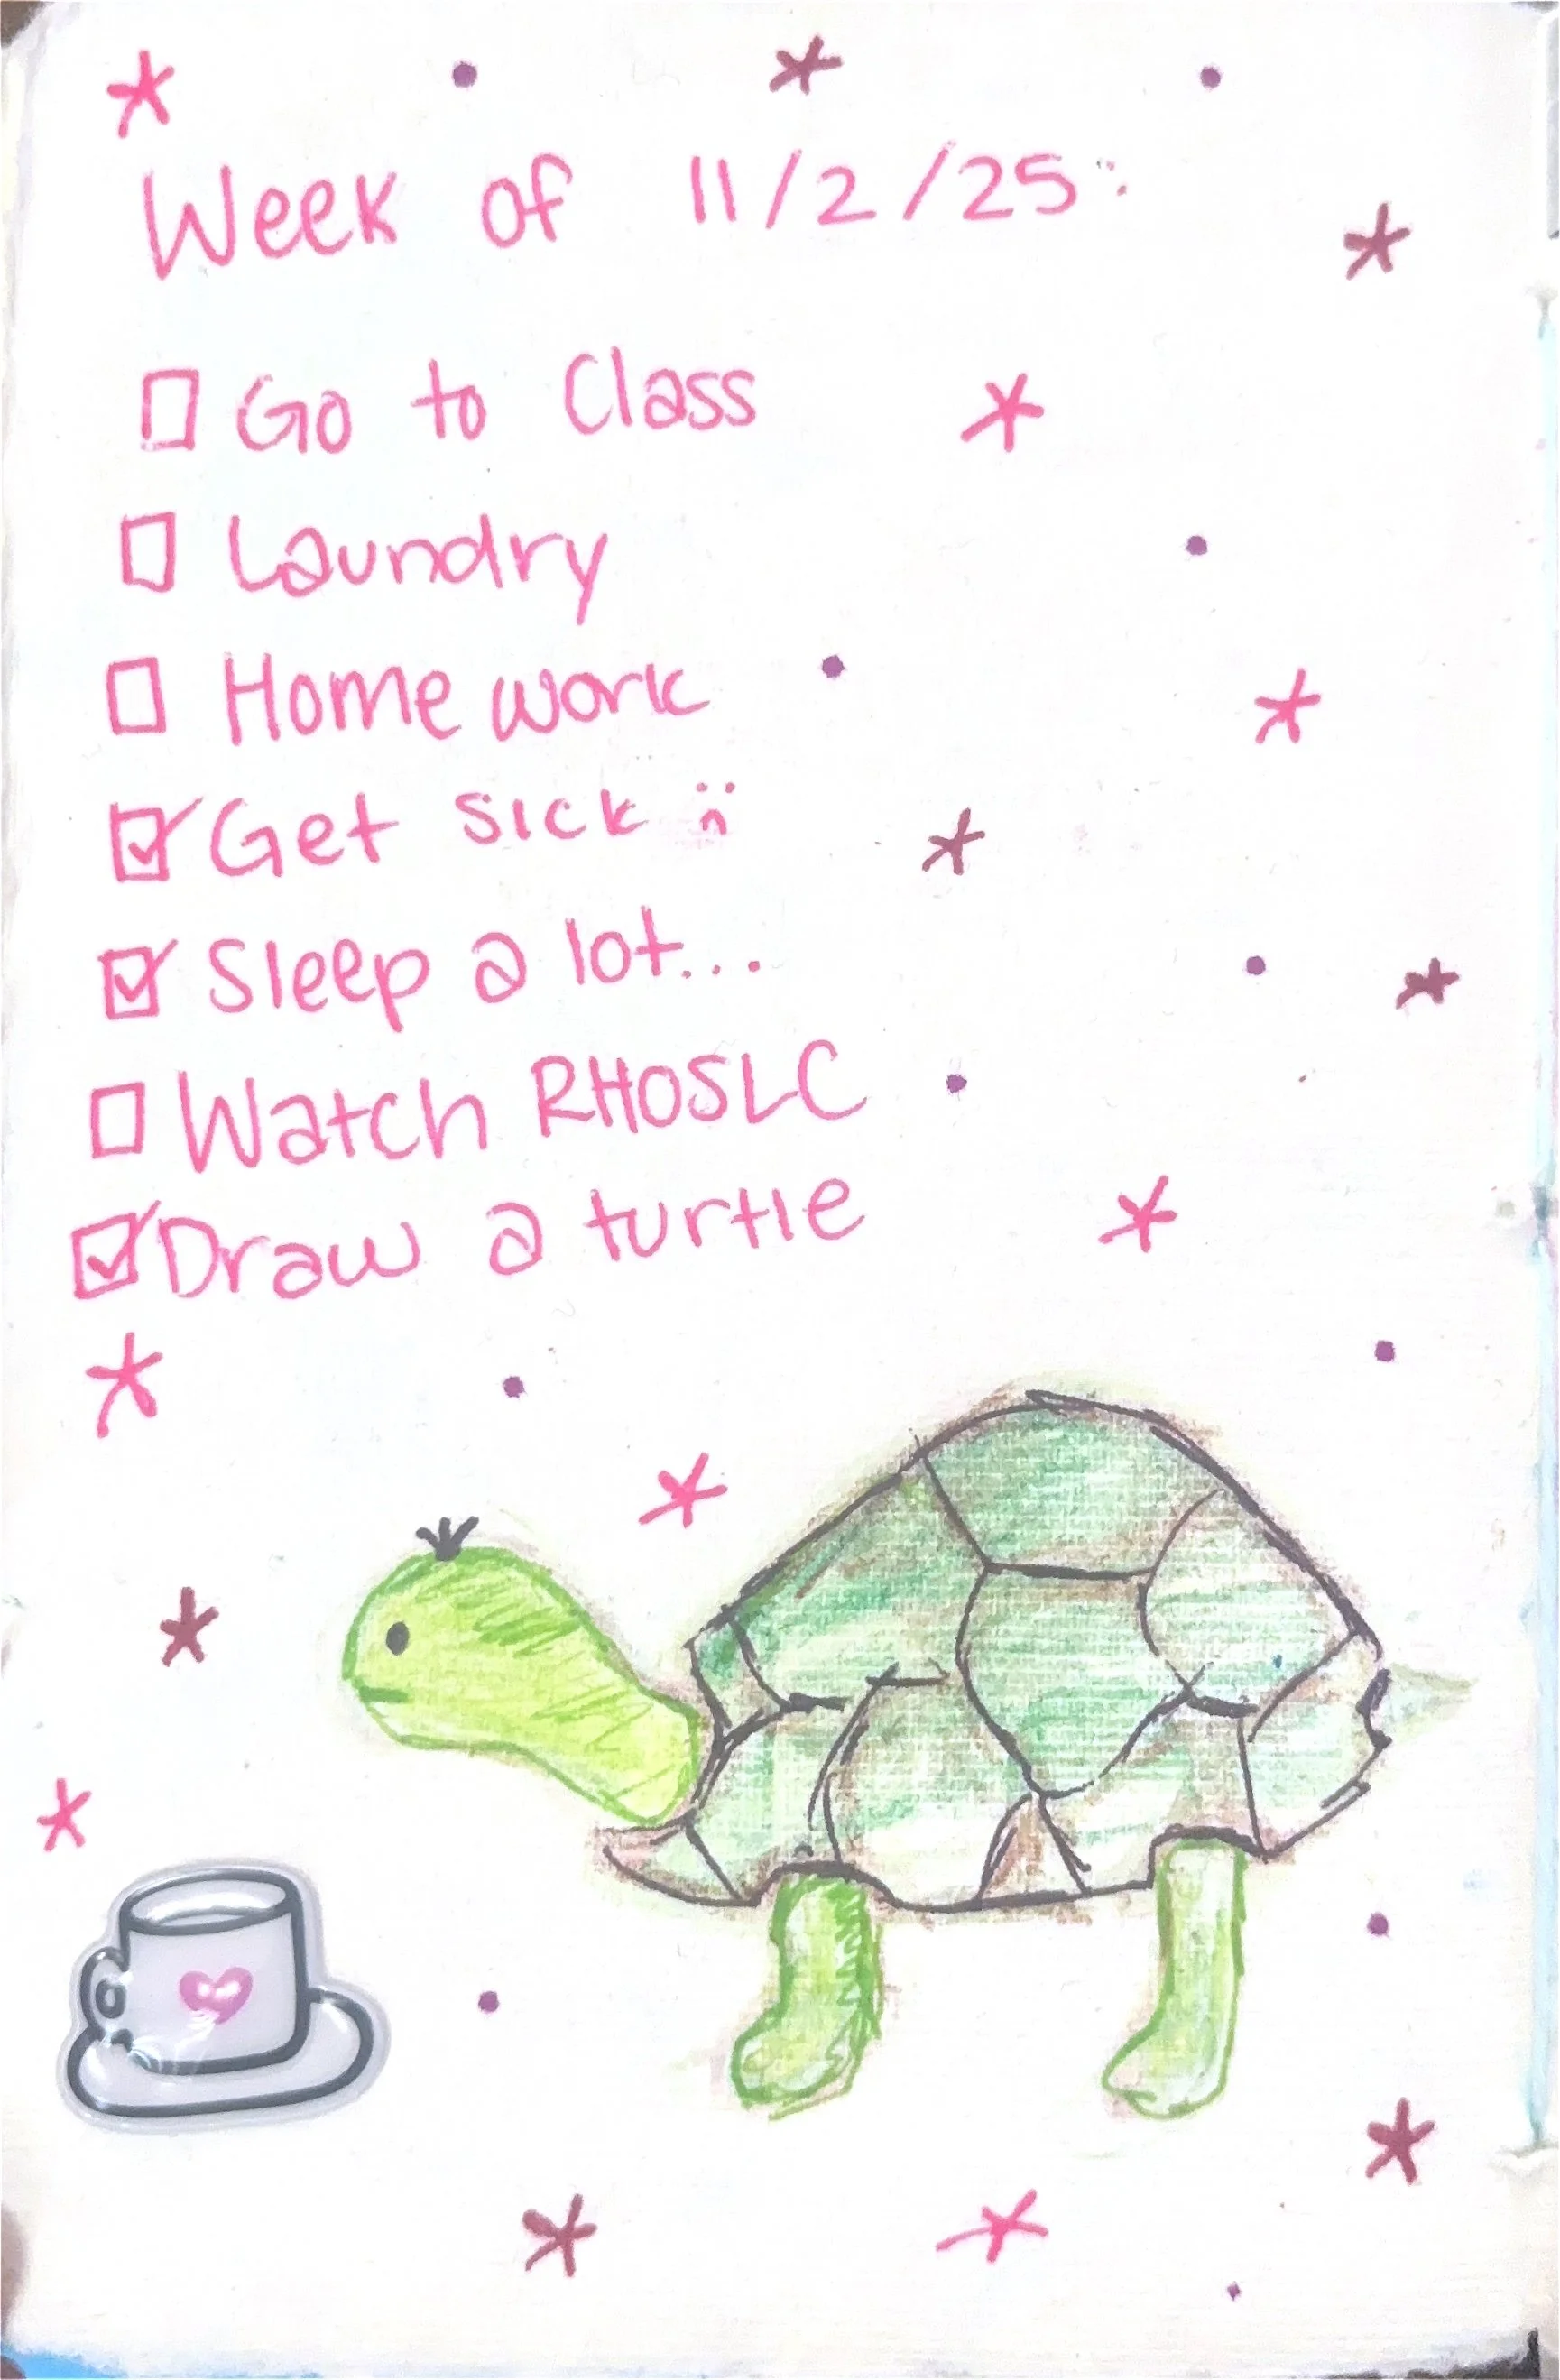 Week of 11/2/25:
☐ Go to Class
☐ Laundry
☐ Home work
☑ Get sick :(
☑ Sleep a lot...
☐ Watch RHOSLC
☑ Draw a turtle